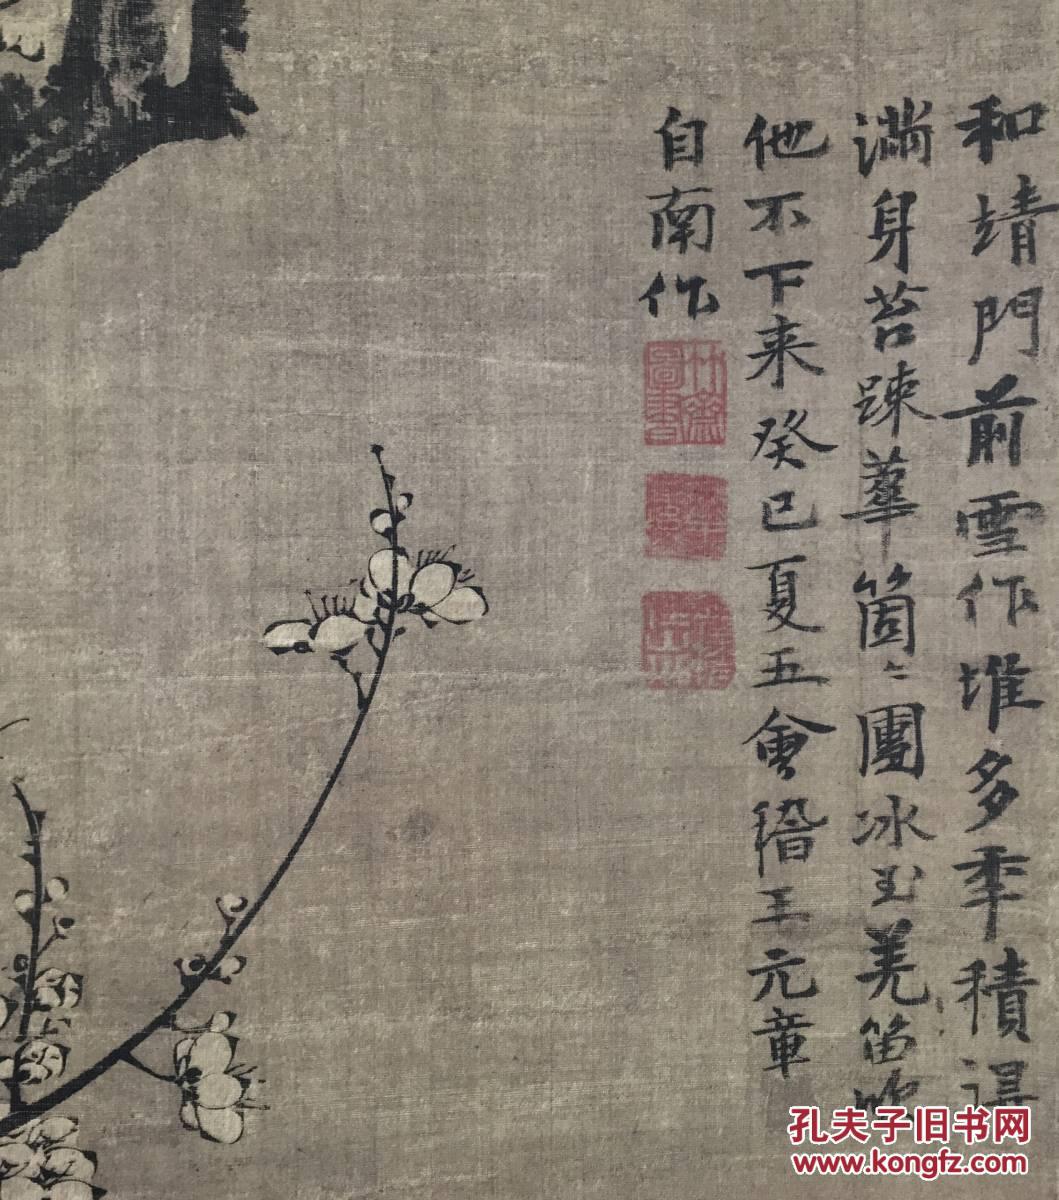 和靖門前雪作堆多年積得
滿身苔疎華箇〻團冰玉羌笛吹
他不下来癸巳夏五會稽王元章
自南作
竹齋圖書
孔夫子旧书网
www.kongfz.com